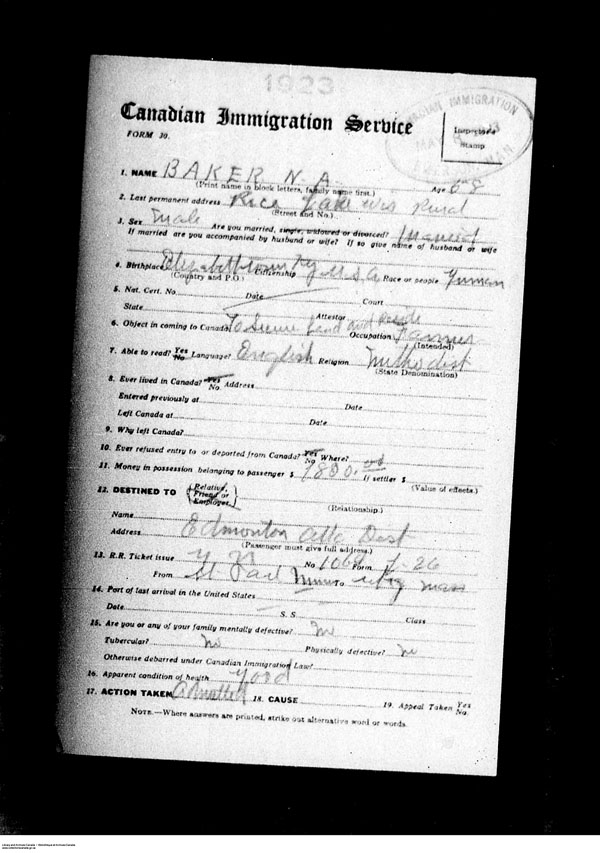 1923
Canadian Immigration Service
FORM 30.
CANADIAN IMMIGRATION
Inspector's
Stamp
1. NAME BAKER N. A. Age 58
(Print name in block letters, family name first.)
2. Last permanent address Rice Lake Wis Rural
(Street and No.)
3. Sex Male Are you married, single, widowed or divorced? Married
If married are you accompanied by husband or wife? If so give name of husband or wife
4. Birthplace Elizabethtown Ky Citizenship U.S.A Race or people German
(Country and P.O.)
5. Nat. Cert. No. Date Court
State Attestor
6. Object in coming to Canada To Secure Land and Reside Occupation Farmer
(Intended)
7. Able to read? Yes No Language? English Religion Methodist
(State Denomination)
8. Ever lived in Canada? Yes No. Address
Entered previously at Date
Left Canada at Date
9. Why left Canada?
10. Ever refused entry to or deported from Canada? Yes No Where?
11. Money in possession belonging to passenger $ If settler $
(Value of effects.)
12. DESTINED TO (Relative, Friend or Employer.)
(Relationship.)
Name
Address Edmonton Alta Dist
(Passenger must give full address.)
13. R.R. Ticket issue No 1068 Form L-26
From St Paul Minn To
14. Port of last arrival in the United States
Date S.S. Class
15. Are you or any of your family mentally defective? No
Tubercular? No Physically defective? No
Otherwise debarred under Canadian Immigration Law?
16. Apparent condition of health Good
17. ACTION TAKEN Admitted 18. CAUSE 19. Appeal Taken Yes No.
NOTE.—Where answers are printed, strike out alternative word or words.